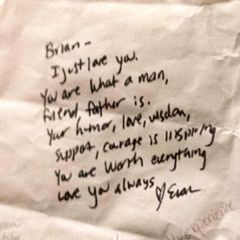 Brian -
I just love you.
You are what a man,
friend, father is.
Your humor, love, wisdom,
support, courage is inspiring
You are worth everything
Love you always
♡ Evan